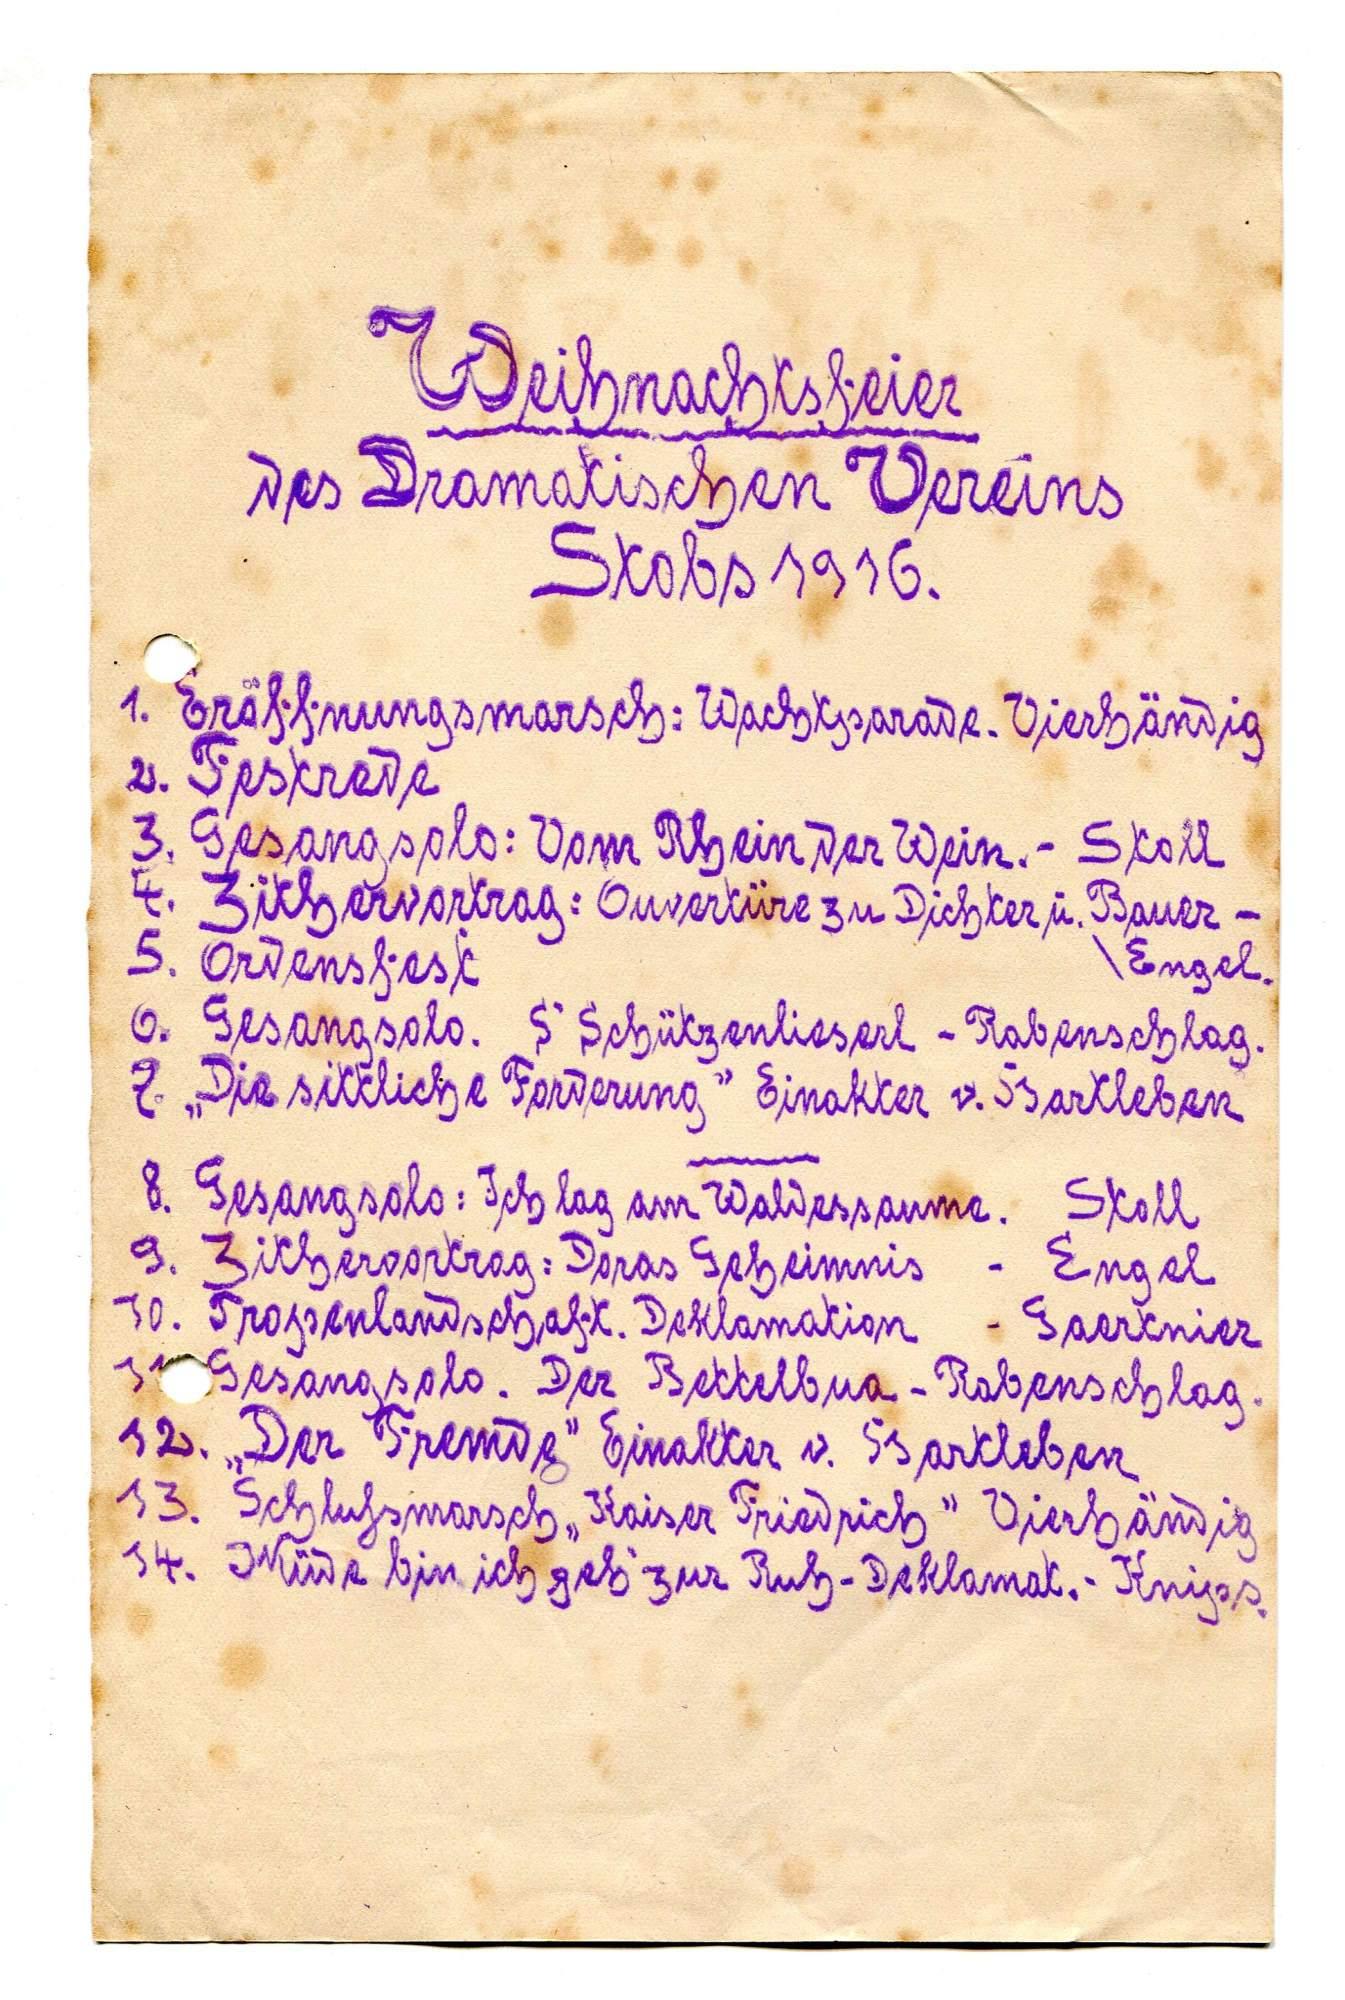 Weihnachtsfeier
des Dramatischen Vereins
Stobs 1916.
1. Eröffnungsmarsch: Wachtparade. Vierhändig
2. Festrede
3. Gesangsolo: Vom Rhein der Wein. - Stoll
4. Zithervortrag: Ouvertüre zu Dichter u. Bauer -
5. Ordensfest \ Engel.
6. Gesangsolo. S' Schützenlieserl - Rabenschlag.
7. „Die sittliche Forderung" Einakter v. Hartleben
8. Gesangsolo: Ich lag am Waldessaume. Stoll
9. Zithervortrag: Doras Geheimnis - Engel
10. Tropenlandschaft. Deklamation - Gaertnier
11. Gesangsolo. Der Bettelbua - Rabenschlag.
12. „Der Fremde" Einakter v. Hartleben
13. Schlußsmarsch „Kaiser Friedrich" Vierhändig
14. Müde bin ich geh' zur Ruh - Deklamat. - Knipps.